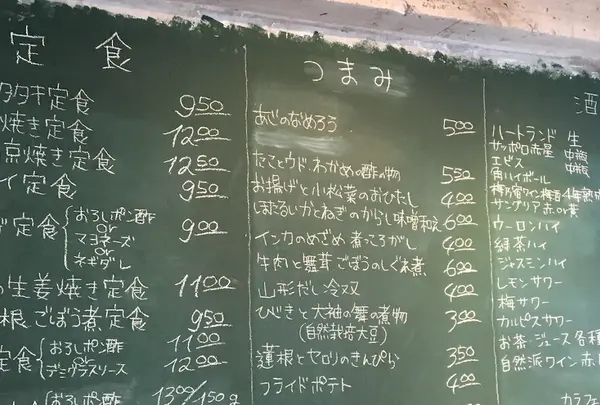 定食
タタキ定食 950
焼き定食 1200
京焼き定食 1250
イ定食 950
定食 おろしポン酢 or マヨネーズ or ネギダレ 900
の生姜焼き定食 1100
根ごぼう煮定食 950
定食 おろしポン酢 1100
or デミグラスソース 1200
おろしポン酢 1300/150g
つまみ
あじのなめろう 500
たことウド、わかめの酢の物 550
お揚げと小松菜のおひたし 400
ほたるいかとねぎのからし味噌和え 600
インカのめざめ 煮っころがし 400
牛肉と舞茸 ごぼうのしぐれ煮 600
山形だし冷奴 400
ひじきと大袖の舞の煮物 300
(自然栽培大豆)
蓮根とセロリのきんぴら 350
フライドポテト 400
酒
ハートランド 生
サッポロ赤星 中瓶
エビス 中瓶
角ハイボール
サングリア 赤or
ウーロンハイ
緑茶ハイ
ジャスミンハイ
レモンサワー
梅サワー
カルピスサワー
お茶・ジュース各種
自然派ワイン 赤
カラフェ